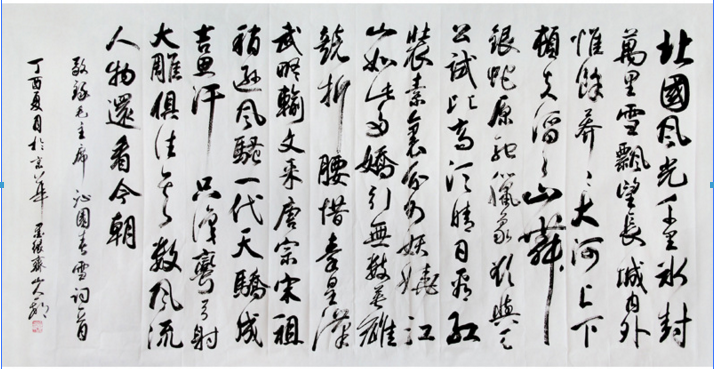 北國風光千里冰封
萬里雪飄望長城内外
惟餘莽々大河上下
頓失滔々山舞
銀蛇原馳臘象欲與天
公試比高須晴日看紅
裝素裹分外妖嬈江
山如此多嬌引無數英雄
競折腰惜秦皇漢
武略輸文采唐宗宋祖
稍遜風騷一代天驕成
吉思汗只識彎弓射
大雕俱往矣數風流
人物還看今朝
敬錄毛主席沁園春雪詞一首
丁酉夏月於京華